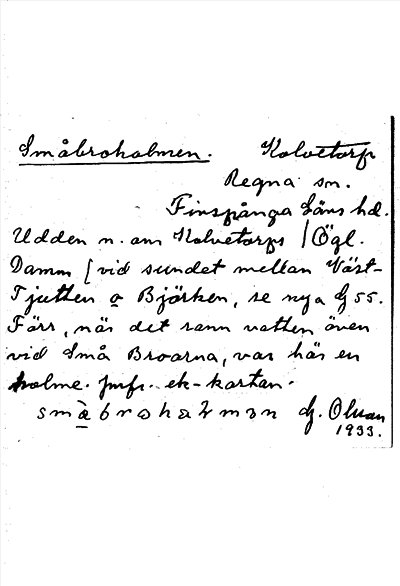 Småbroholmen. Kolvetorp
Regna sn.
Finspånga Läns hd.
Udden n. om Kolvetorps / Ögl.
Damm [vid sundet mellan Väst-
Tjutten o Björken, se nya G 55.
Förr, när det rann vatten även
vid Små Broarna, var här en
holme. Jmfr. ek-kartan.
G. Olsson
1933.